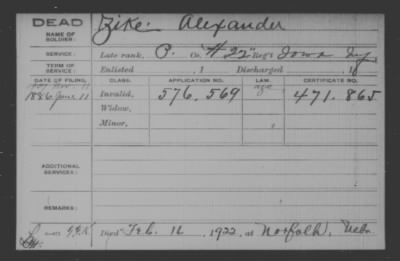 DEAD
NAME OF
SOLDIER:
Zike Alexander
SERVICE:
Late rank, P. Co. "H" 22" Reg't Iowa Inf.
TERM OF
SERVICE:
Enlisted , 1 Discharged , 1
DATE OF FILING. CLASS. APPLICATION NO. LAW. CERTIFICATE NO.
1886 June 11 Invalid, 576.569 471.865
Widow,
Minor,
ADDITIONAL
SERVICES:
REMARKS:
Died Feb. 16, 1922, at Norfolk, Nebr.